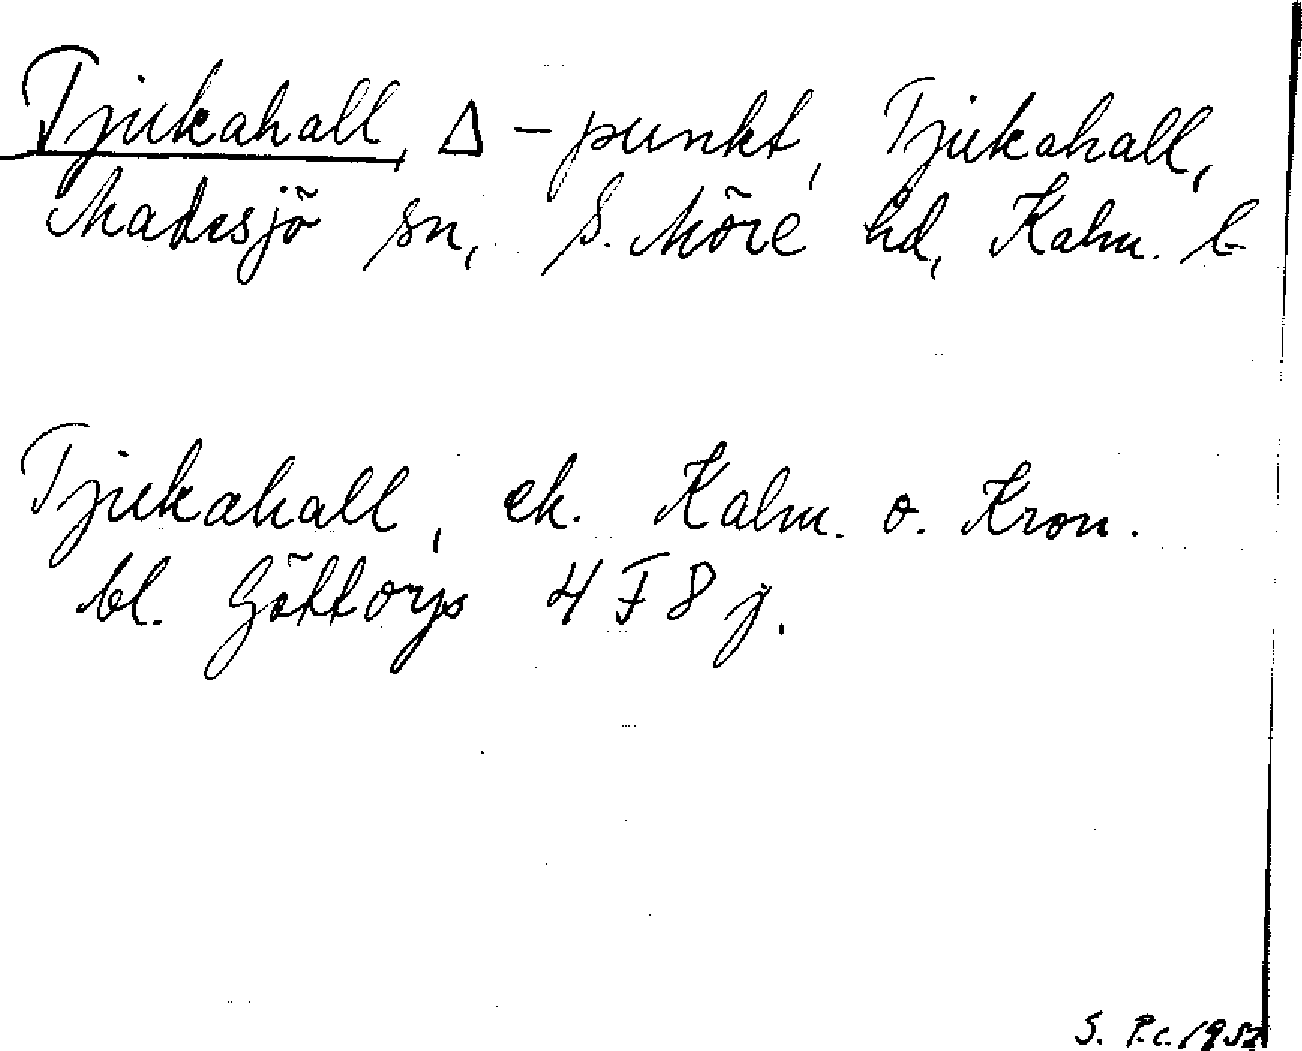 Tjukahall, Δ-punkt, Tjukahall,
Madesjö sn, S. Möre hd, Kalm. l.
Tjukahall, ek. Kalm. o. Kron.
bl. Göttorp 4 F 8 j.
S. P.c. 1952